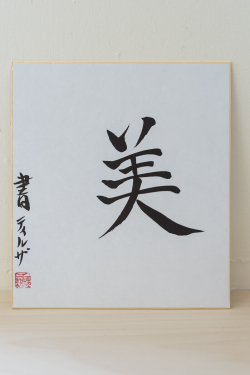 美
書 ティルザ